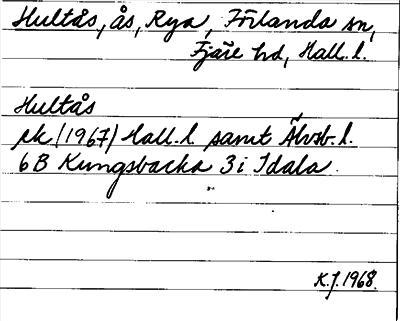 Hultås, ås, Rya, Förlanda sn,
Fjäre hd, Hall. l.
Hultås
ek (1967) Hall. l. samt Älvsb. l.
6B Kungsbacka 3i Idala.
K.J. 1968.